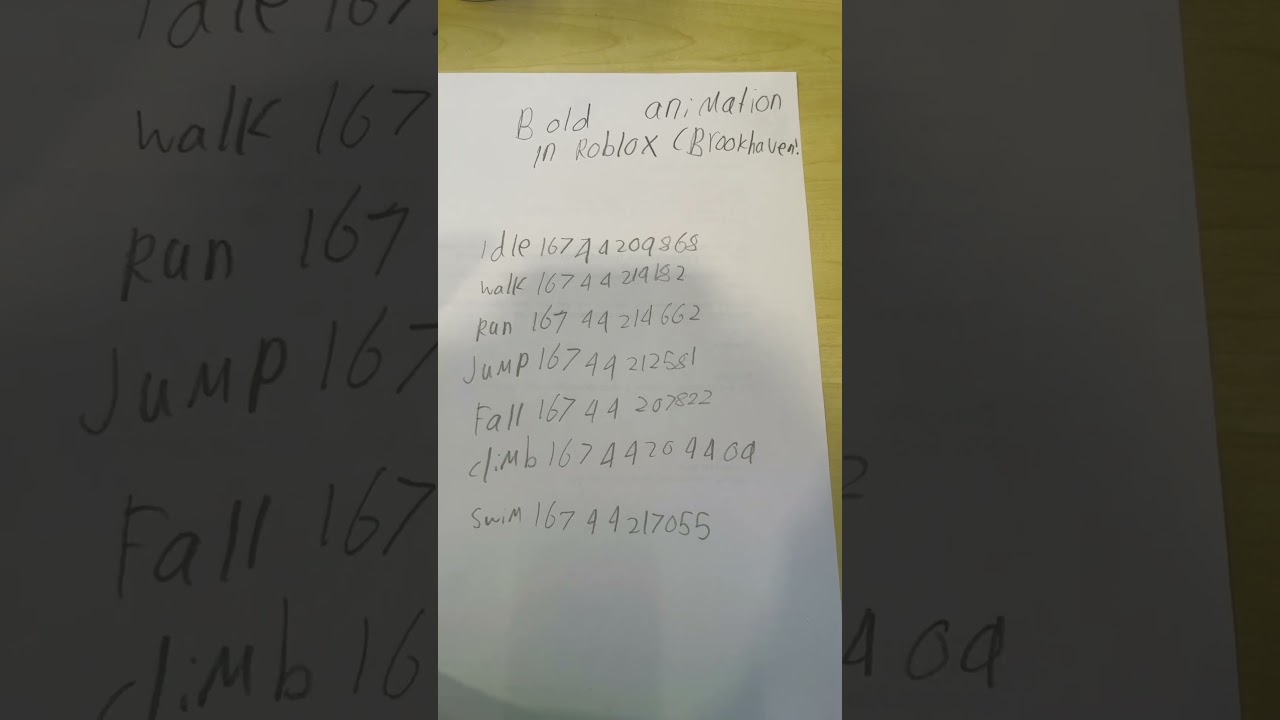 Bold animation
in Roblox (Brookhaven!
Idle 16744209868
walk 16744219182
Run 16744214662
Jump 16744212581
Fall 16744207822
climb 16744204409
swim 16744217055